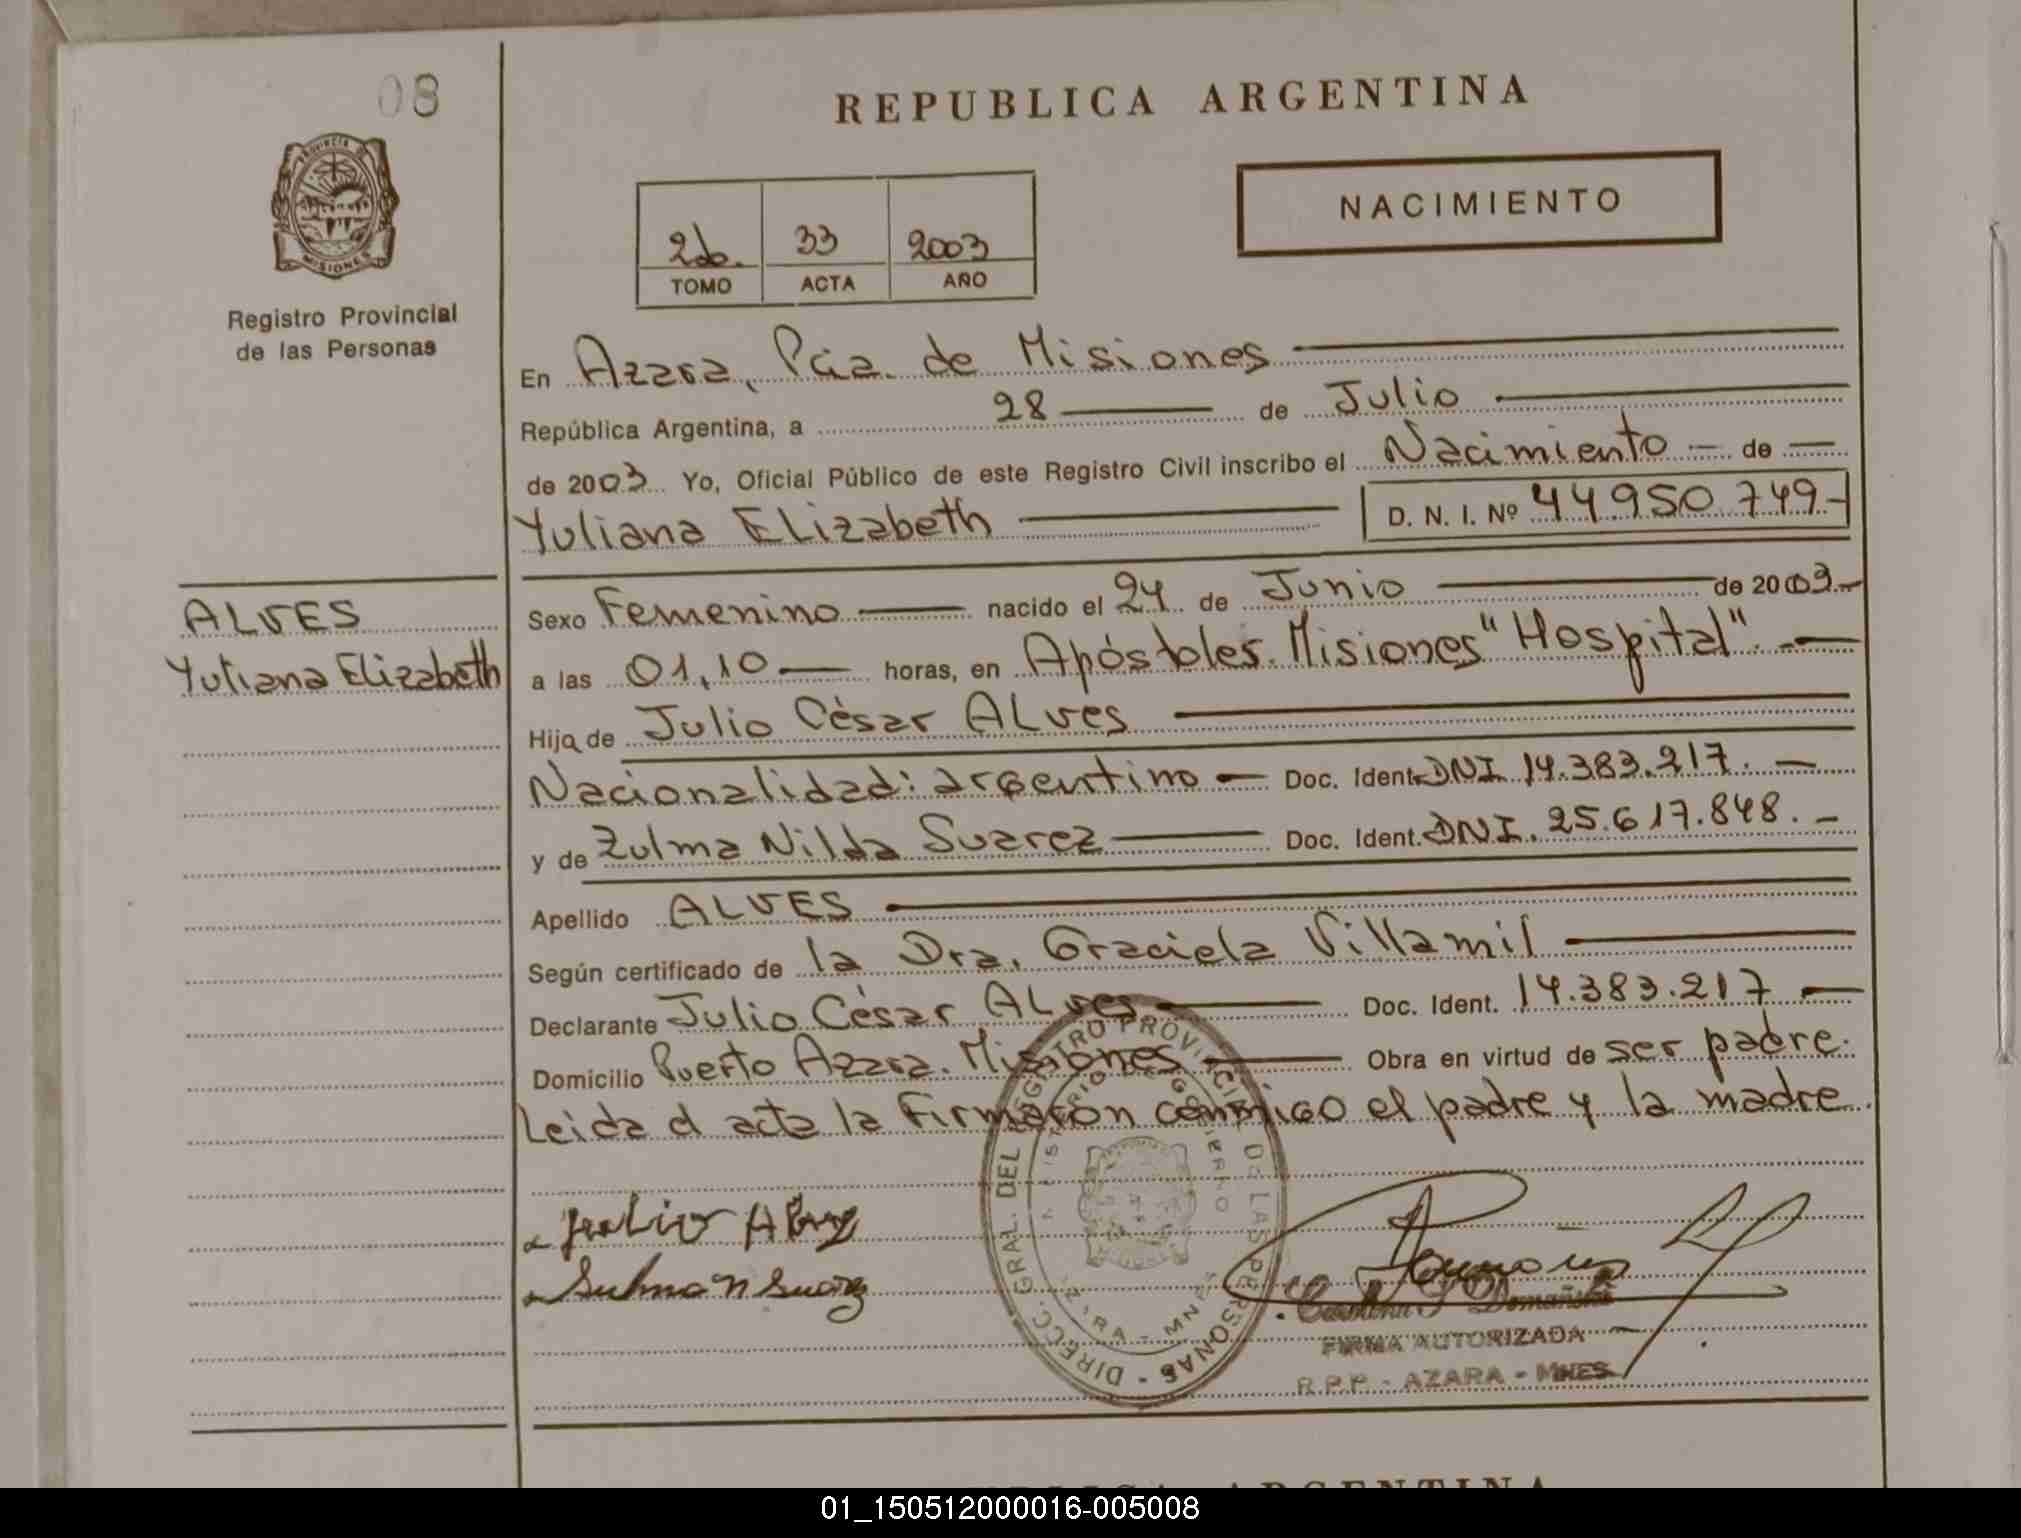 08
REPUBLICA ARGENTINA
PROVINCIA DE
MISIONES
Registro Provincial
de las Personas
NACIMIENTO
2b. 33 2003
TOMO ACTA AÑO
En Azara, Pcia. de Misiones
República Argentina, a 28 de Julio
de 2003 Yo, Oficial Público de este Registro Civil inscribo el Nacimiento de
Yuliana Elizabeth D. N. I. Nº 44.950.749-
ALVES
Yuliana Elizabeth
Sexo Femenino nacido el 24 de Junio de 2003.-
a las 01,10 horas, en Apóstoles. Misiones "Hospital".-
Hija de Julio César ALves
Nacionalidad: argentino Doc. Ident. DNI 14.383.217.-
y de Zulma Nilda Suarez Doc. Ident. DNI. 25.617.848.-
Apellido ALVES
Según certificado de la Dra. Graciela Villamil
Declarante Julio César ALves Doc. Ident. 14.383.217
Domicilio Puerto Azara. Misiones Obra en virtud de ser padre.
Leida el acta la firmaron conmigo el padre y la madre.
DIRECC. GRAL. DEL REGISTRO PROVINCIAL DE LAS PERSONAS -
MINISTERIO DE GOBIERNO
AZARA - MNES
Julio Alvez
Sulma N Suarez
FIRMA AUTORIZADA
R.P.P - AZARA - MNES
REPUBLICA ARGENTINA
01_150512000016-005008